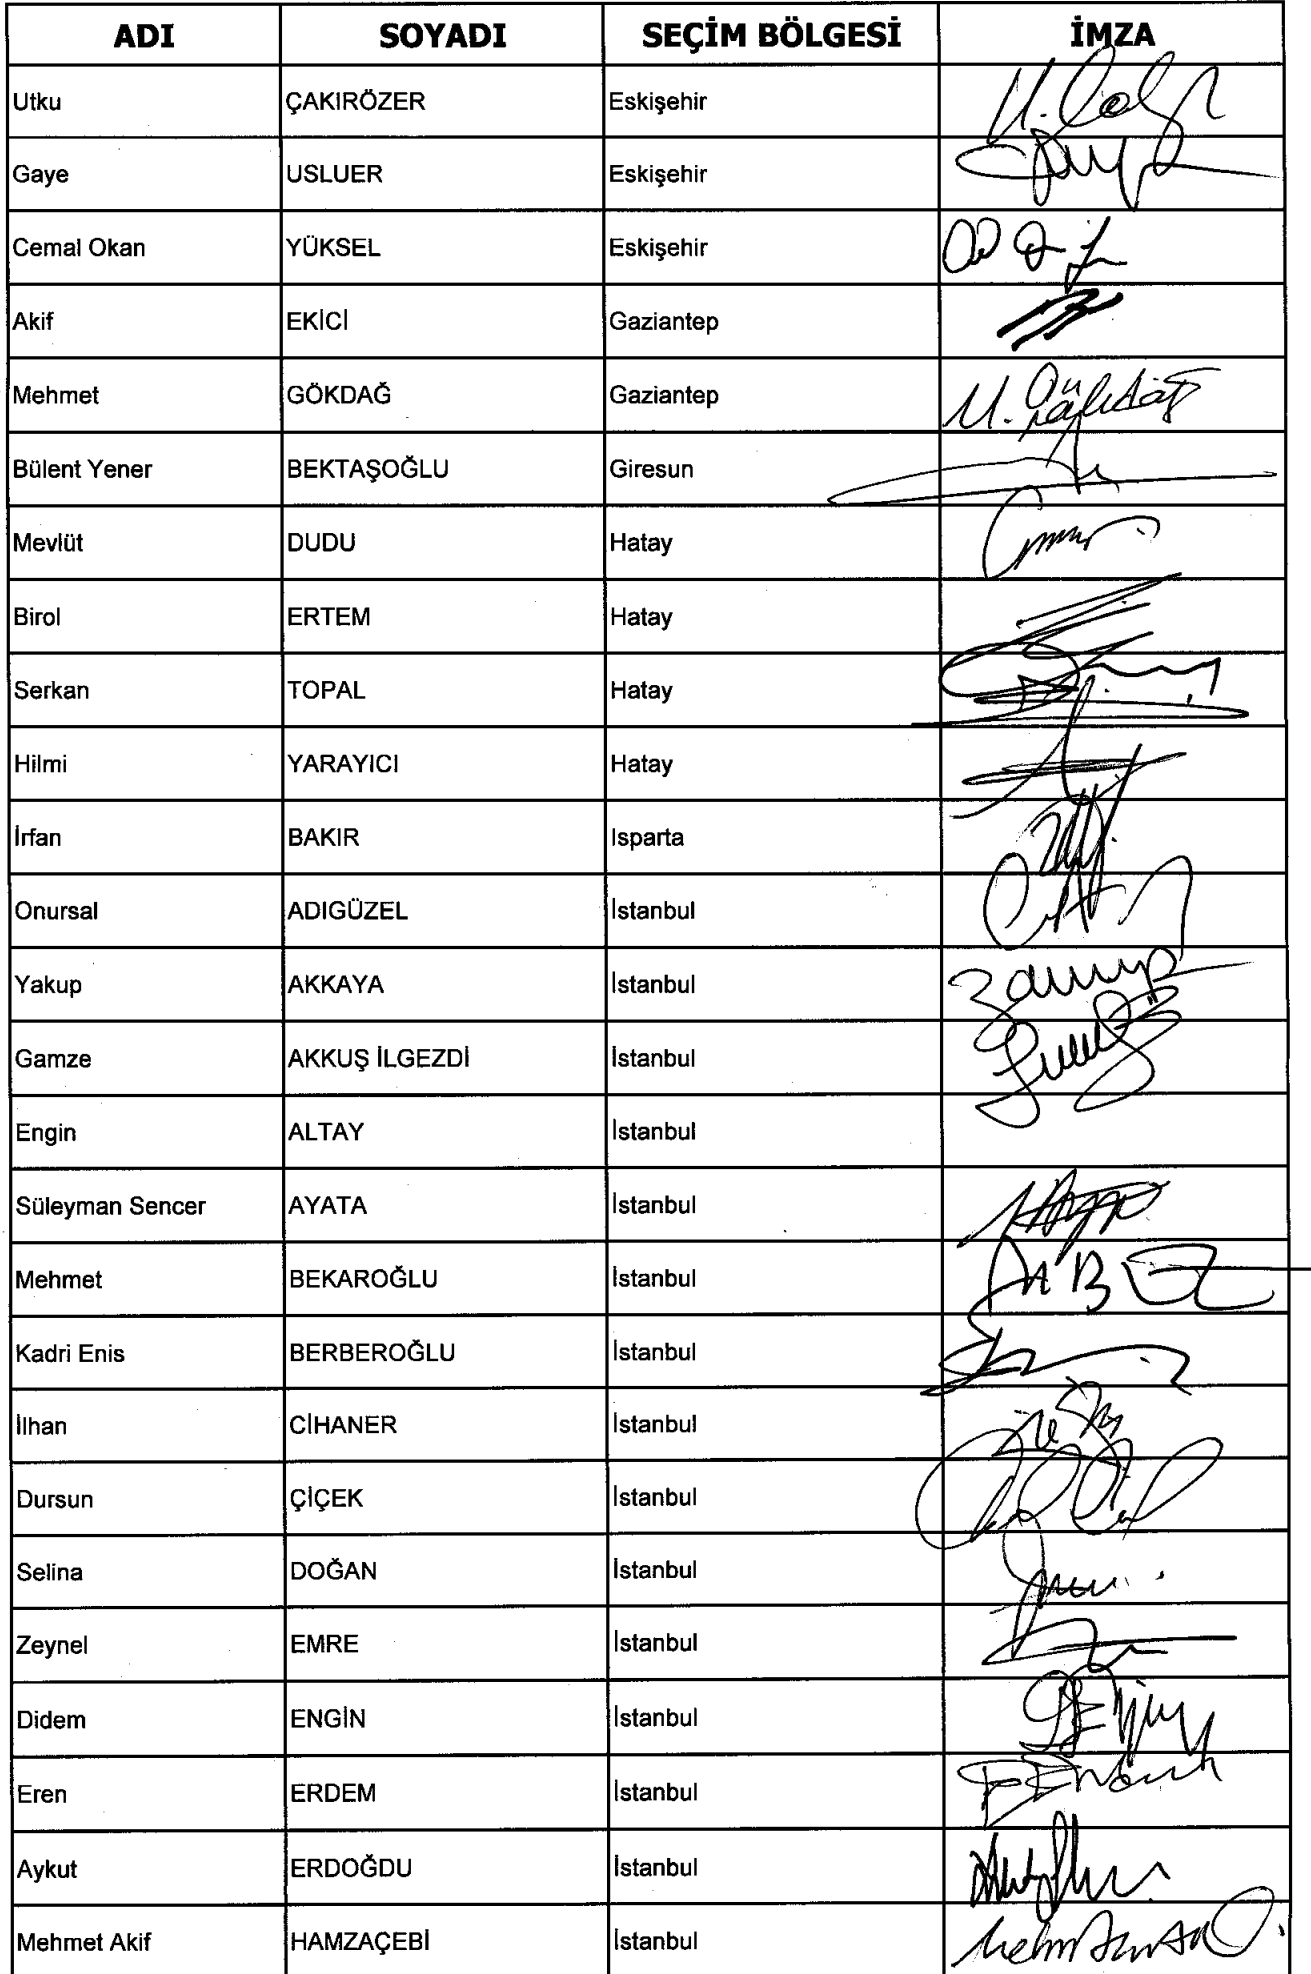 ADI SOYADI SEÇİM BÖLGESİ İMZA
Utku ÇAKIRÖZER Eskişehir
Gaye USLUER Eskişehir
Cemal Okan YÜKSEL Eskişehir
Akif EKİCİ Gaziantep
Mehmet GÖKDAĞ Gaziantep
Bülent Yener BEKTAŞOĞLU Giresun
Mevlüt DUDU Hatay
Birol ERTEM Hatay
Serkan TOPAL Hatay
Hilmi YARAYICI Hatay
İrfan BAKIR Isparta
Onursal ADIGÜZEL İstanbul
Yakup AKKAYA İstanbul
Gamze AKKUŞ İLGEZDİ İstanbul
Engin ALTAY İstanbul
Süleyman Sencer AYATA İstanbul
Mehmet BEKAROĞLU İstanbul
Kadri Enis BERBEROĞLU İstanbul
İlhan CİHANER İstanbul
Dursun ÇİÇEK İstanbul
Selina DOĞAN İstanbul
Zeynel EMRE İstanbul
Didem ENGİN İstanbul
Eren ERDEM İstanbul
Aykut ERDOĞDU İstanbul
Mehmet Akif HAMZAÇEBİ İstanbul